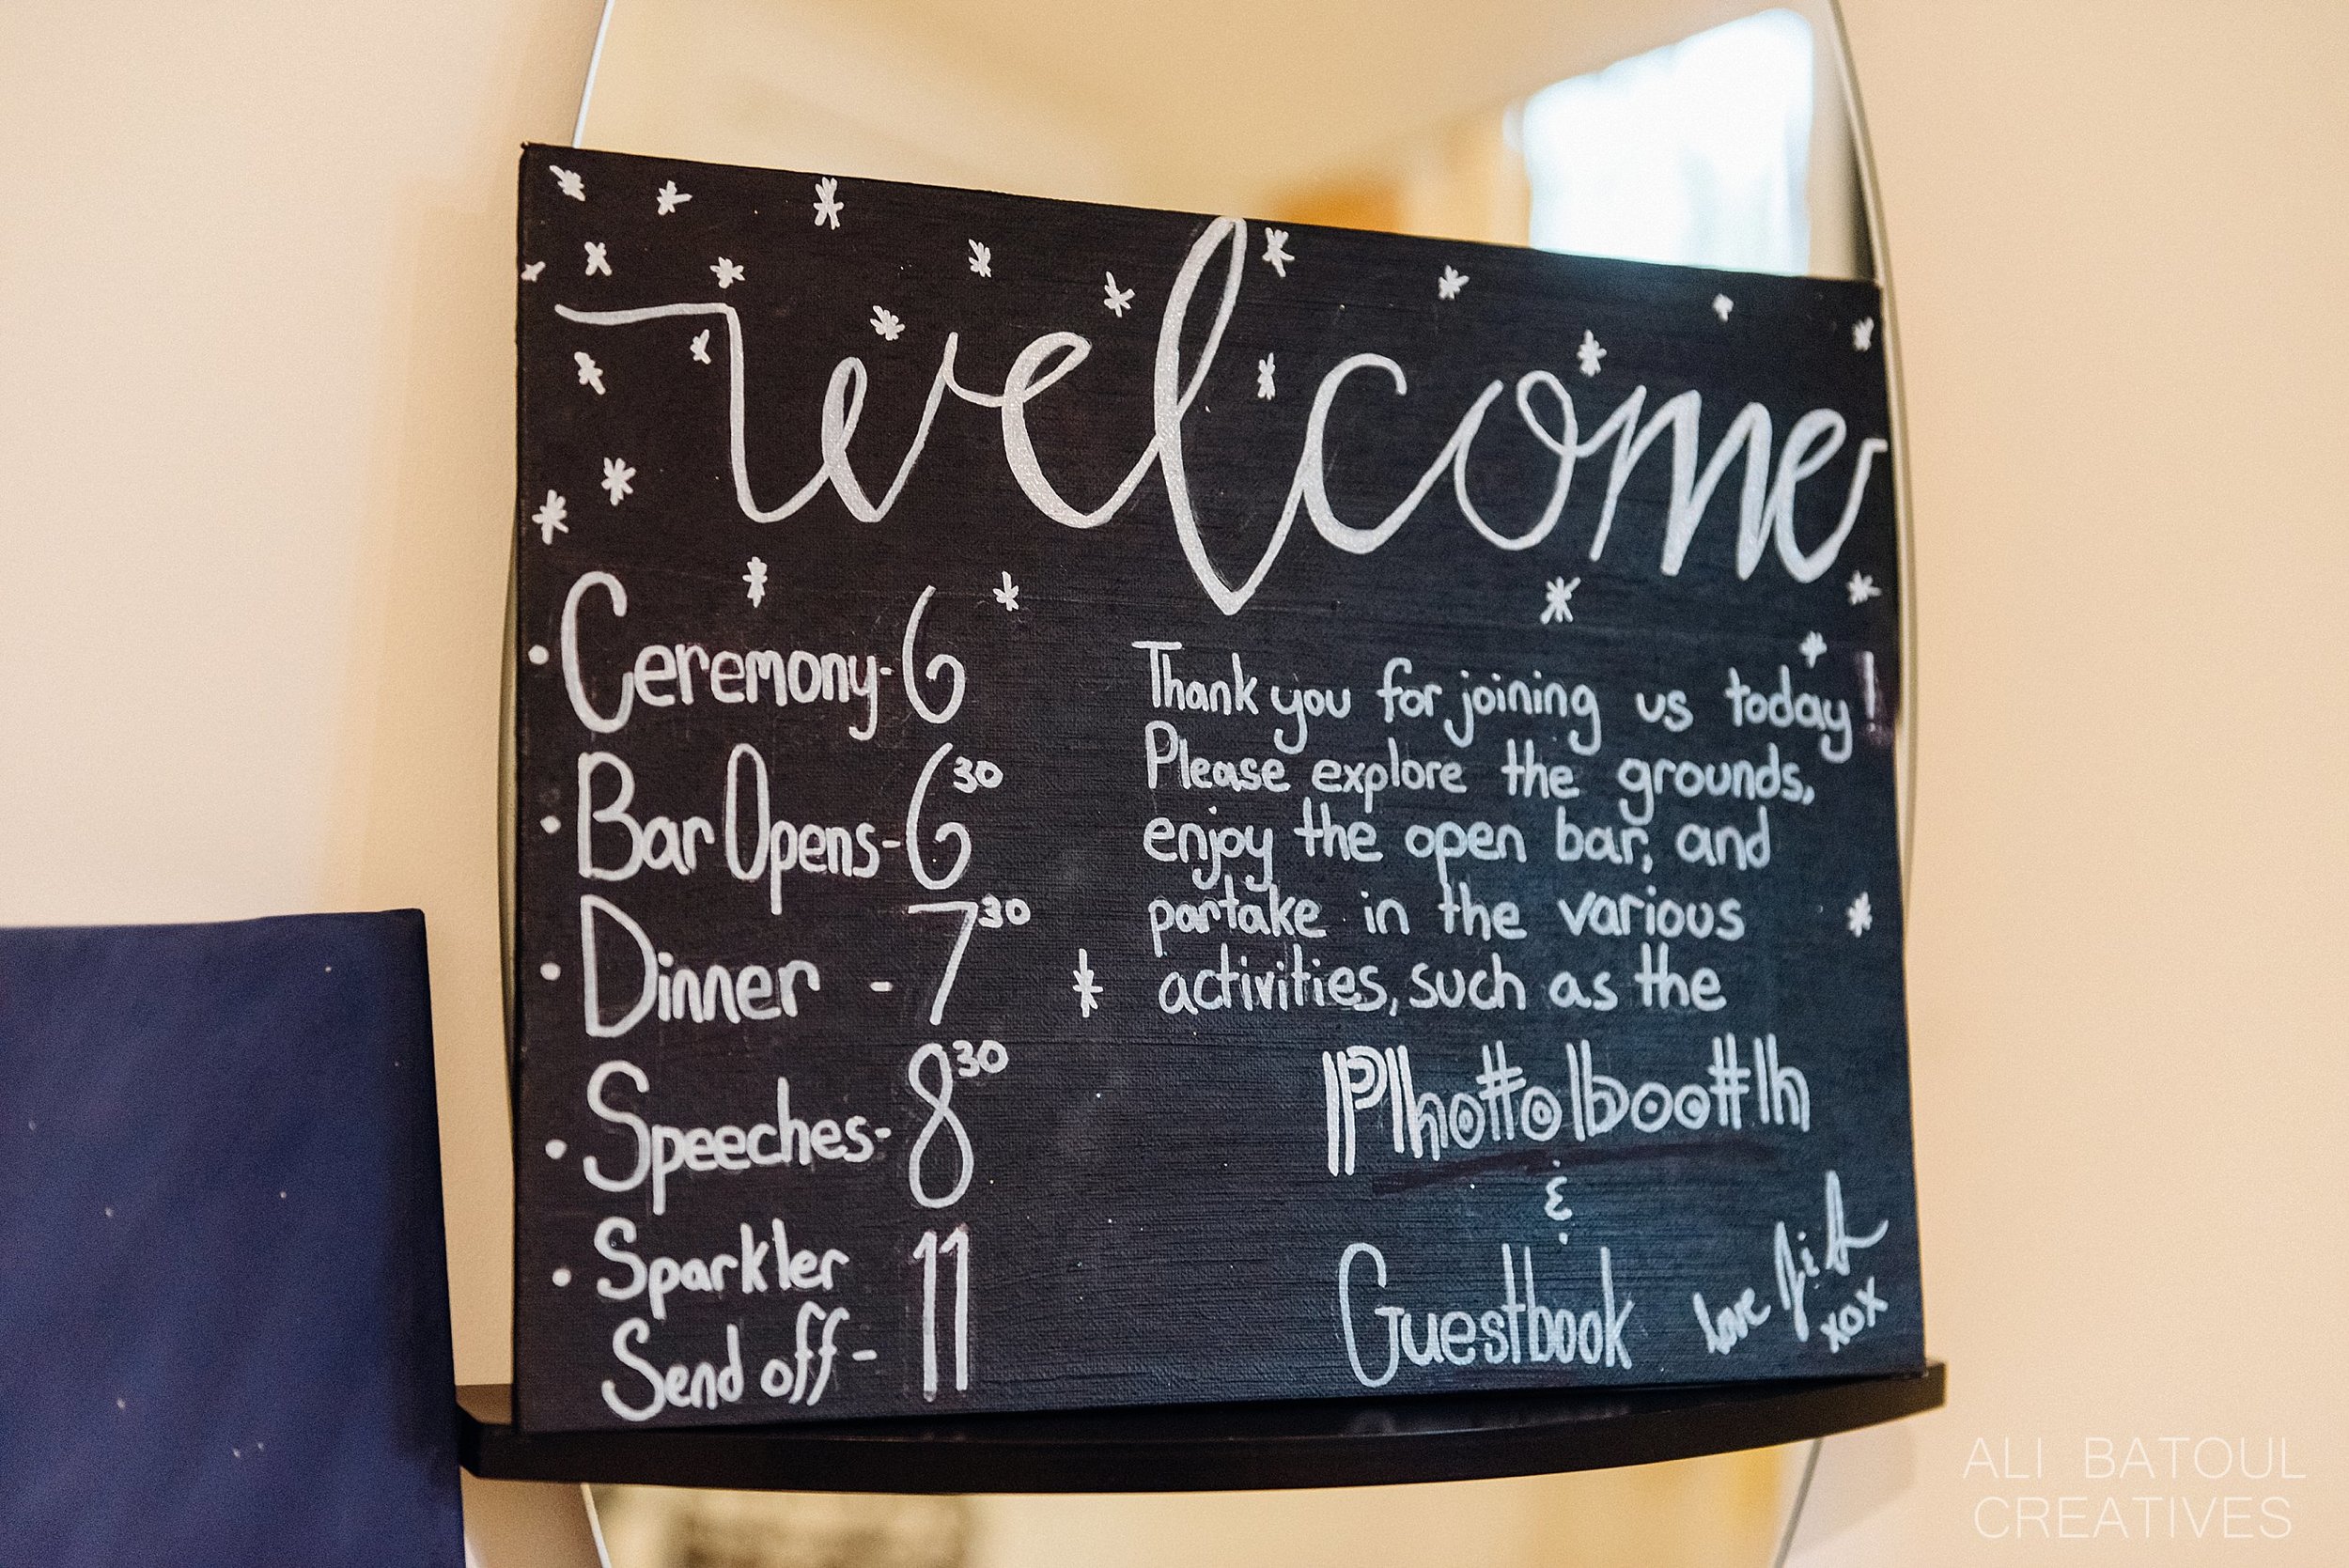 welcome
• Ceremony - 6
• Bar Opens - 6 30
• Dinner - 7 30
• Speeches - 8 30
• Sparkler
Send off - 11
Thank you for joining us today!
Please explore the grounds,
enjoy the open bar, and
partake in the various
activities, such as the
Photobooth
&
Guestbook
love
xox
ALI BATOUL
CREATIVES